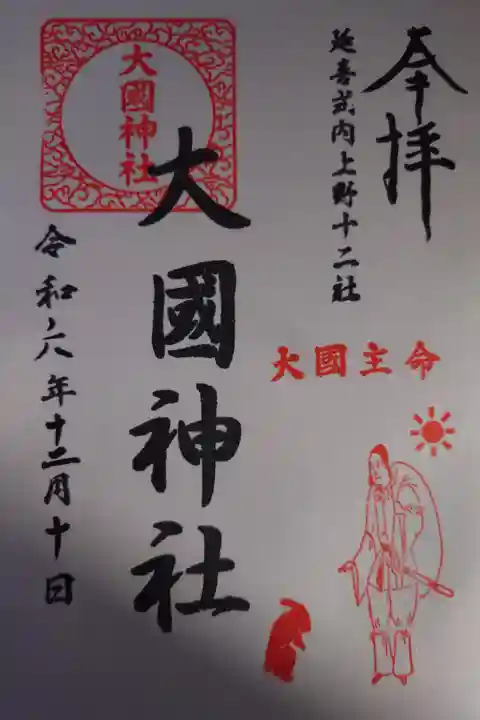 奉拝
延喜式内上野十二社
大國主命
大國神社
大國神社
令和六年十二月十日